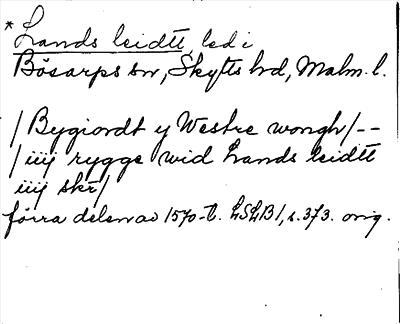 * Lands leidtt, led i
Bösarps sn, Skytts hd, Malm. l.
/ Bygiordt y Westre wongh / - -
/ iiij rygge wid Lands leidtt
iiij skr /
förra delen av 1570-t. LSLB 1, s. 373. orig.